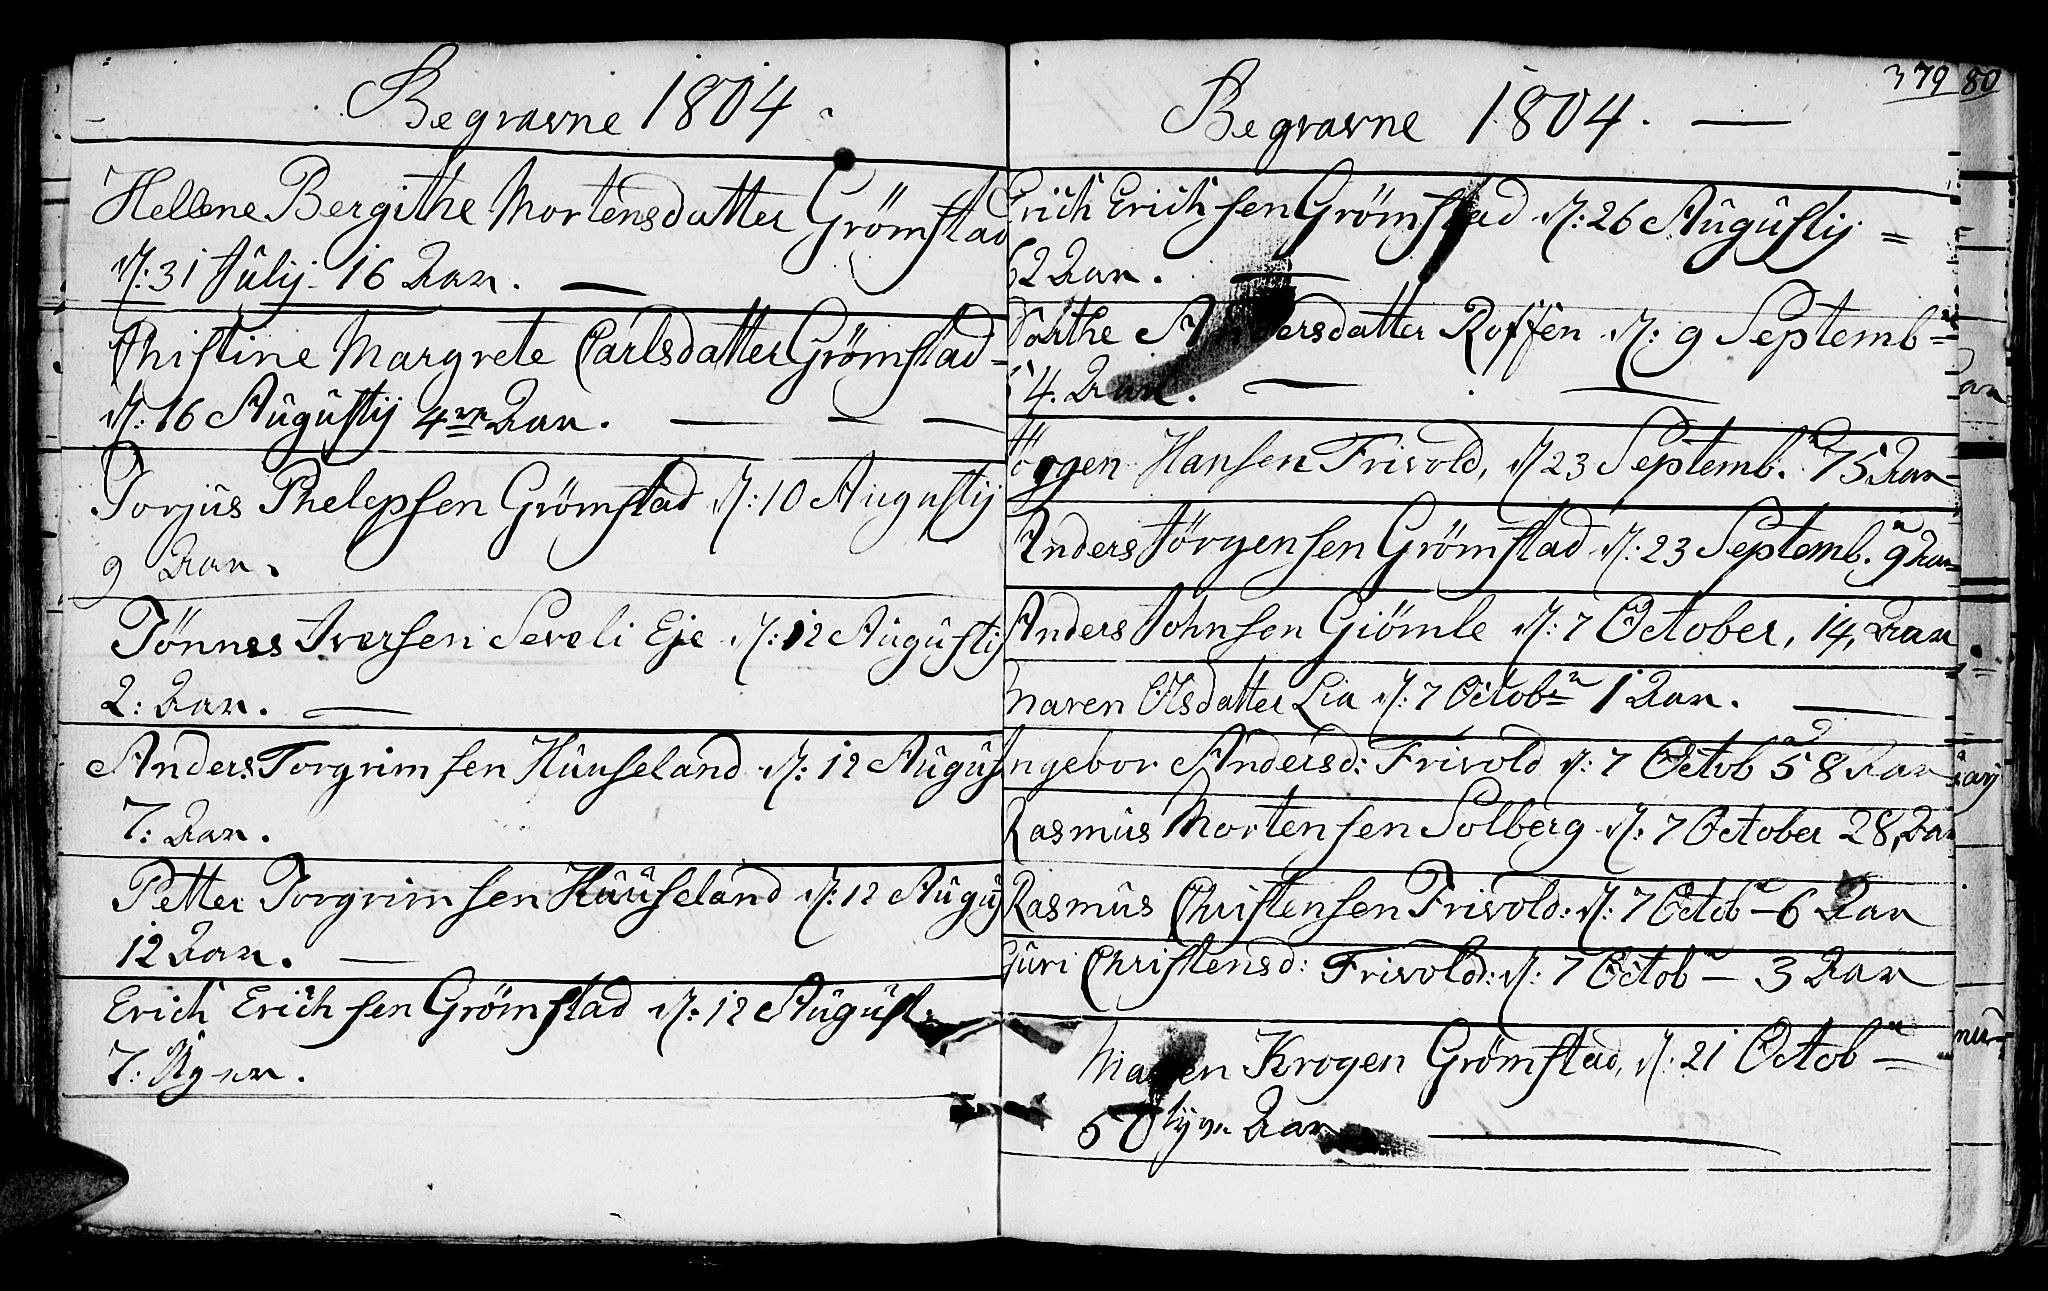 Begravne 1804.
Hellene Bergithe Mortensdatter Grömstad
d: 31 Julij 16 Aar.
Christine Margrete Carlsdatter Grömstad
d: 16 Augustij 4re Aar.
Torjus Phelepsen Grömstad d: 10 Augustij
9 Aar.
Tönnes Iversen Seveli Eje d: 12 Augustij
2: Aar.
Anders Torgrimsen Huuseland d: 12 Augus
7: Aar.
Petter Torgrimsen Huuseland d: 12 Augu
12 Aar.
Erich Erichsen Grömstad d: 12 August.
7: Uger.
379 80
Begravne 1804.
Erich Erichsen Grömstad d: 26 Augustij =
62 Aar.
Dorthe Andersdatter Roffen d: 9 Septembr
4. Aar.
Jörgen Hansen Frivold, d 23 Septemb. 75 Aar
Anders Jörgensen Grömstad d: 23 Septemb. 9 Aar
Anders Johnsen Giömle d: 7 October, 14, Aar
Maren Olsdatter Lia d: 7 Octobr 1 Aar.
Ingebor Andersd: Frivold d: 7 Octob 58 Aar
Rasmus Mortensen Solberg d: 7 October 28, Aar
Rasmus Christensen Frivold: d: 7 Octobr 6 Aar
Guri Christensd: Frivold: d: 7 Octobr 3 Aar
Maren Krogen Grömstad, d: 21 Octobr
50tyve Aar